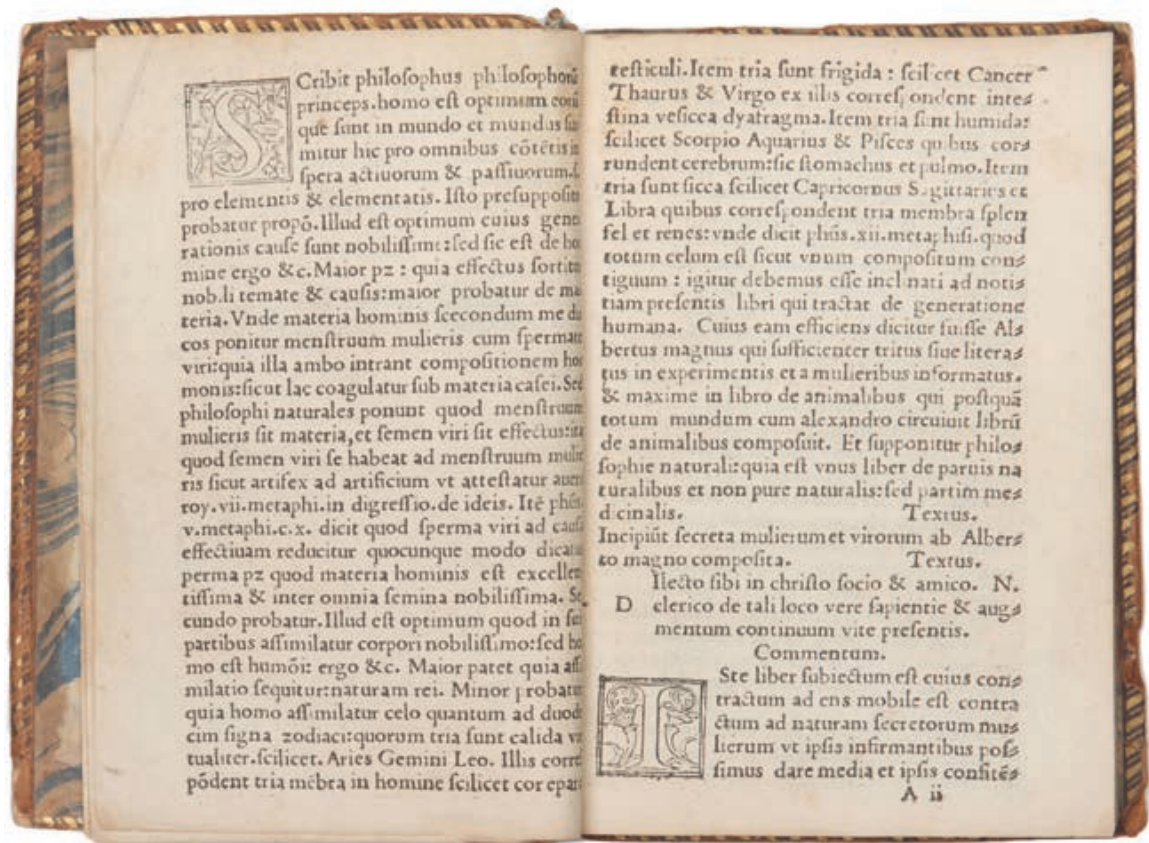 SCribit philosophus philosophorū
princeps. homo est optimum eorū
que sunt in mundo et mundus su
mitur hic pro omnibus cōtētis in
spera actiuorum & passiuorum.
pro elementis & elementatis. Isto presupposito
probatur propō. Illud est optimum cuius gene
rationis cause sunt nobilissime: sed sic est de ho
mine ergo &c. Maior pz : quia effectus sortitu
nob.li temate & causis: maior probatur de ma
teria. Vnde materia hominis scecondum me di
cos ponitur menstruum mulieris cum spermate
viri: quia illa ambo intrant compositionem ho
monis: sicut lac coagulatur sub materia casei. Sed
philosophi naturales ponunt quod menstruum
mulieris sit materia, et semen viri sit effectus: ita
quod semen viri se habeat ad menstruum mulie
ris sicut artifex ad artificium vt attestatur auer
roy. vii. metaphi. in digressio. de ideis. Itē phūs
v. metaphi. c. x. dicit quod sperma viri ad causā
effectiuam reducitur quocunque modo dicatu
perma pz quod materia hominis est excellen
tissima & inter omnia semina nobilissima. Se
cundo probatur. Illud est optimum quod in sui
partibus assimilatur corpori nobilissimo: sed ho
mo est humōi: ergo &c. Maior patet quia assi
milatio sequitur: naturam rei. Minor probatur
quia homo assimilatur celo quantum ad duode
cim signa zodiaci: quorum tria sunt calida vir
tualiter. scilicet. Aries Gemini Leo. Illis corres
pōdent tria mēbra in homine scilicet cor epar
testiculi. Item tria sunt frigida : scilicet Cancer
Thaurus & Virgo ex illis correspondent intes⸗
stina vesicca dyafragma. Item tria sunt humida:
scilicet Scorpio Aquarius & Pisces quibus cor⸗
rundent cerebrum: sic stomachus et pulmo. Item
tria sunt sicca scilicet Capricornus Sagittaries et
Libra quibus correspondent tria membra splen
fel et renes: vnde dicit phūs. xii. metaphisi. quod
totum celum est sicut vnum compositum con⸗
tiguum : igitur debemus esse inclinati ad noti⸗
tiam presentis libri qui tractat de generatione
humana. Cuius eam efficiens dicitur fuisse Al⸗
bertus magnus qui sufficienter tritus siue litera⸗
tus in experimentis et a mulieribus informatus.
& maxime in libro de animalibus qui postquā
totum mundum cum alexandro circuiuit librū
de animalibus composuit. Et supponitur philo⸗
sophie naturali: quia est vnus liber de paruis na
turalibus et non pure naturalis: sed partim me⸗
dicinalis. Textus.
Incipiūt secreta mulierum et virorum ab Alber⸗
to magno composita. Textus.
DIlecto sibi in christo socio & amico. N.
clerico de tali loco vere sapientie & aug⸗
mentum continuum vite presentis.
Commentum.
ISte liber subiectum est cuius con⸗
tractum ad ens mobile est contra
ctum ad naturam secretorum mu⸗
lierum vt ipsis infirmantibus pos⸗
simus dare media et ipsis confitē⸗
A ii